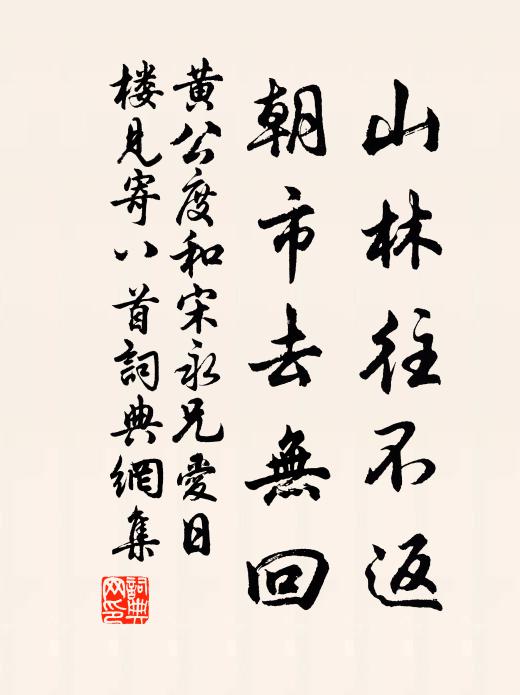 山林往不返
朝市去無回
黄公度和宋永兄愛日
樓見寄八首詞典網集
詞典網印